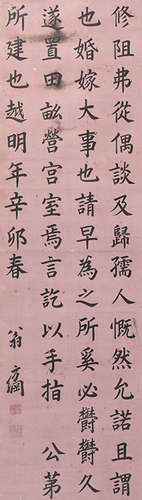 修阻弗從偶談及歸孺人慨然允諾且謂
也婚嫁大事也請早為之所奚必鬱鬱久
遂置田畝營宮室焉言訖以手指　公第
所建也越明年辛卯春
翁方綱